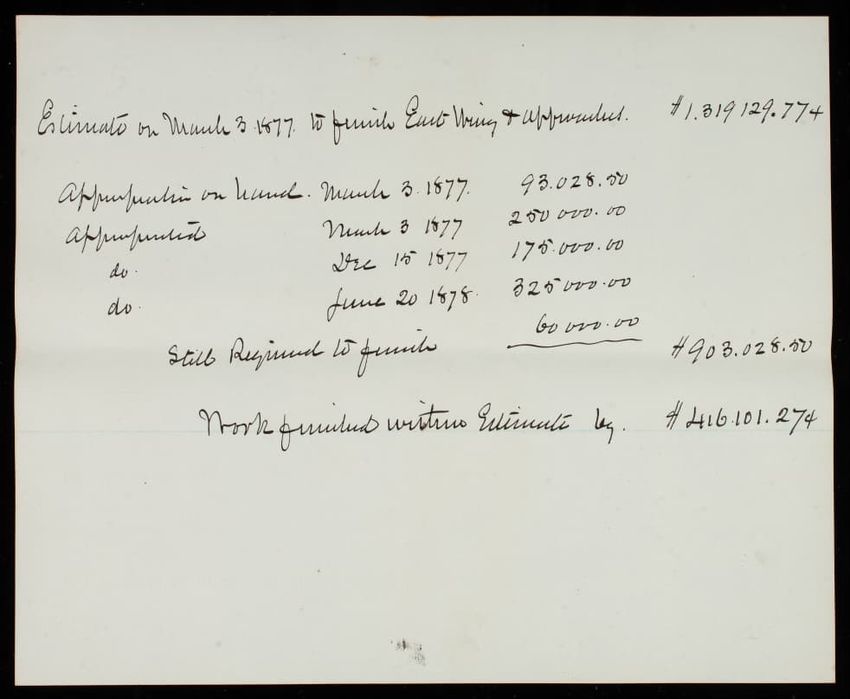 Estimate on March 3 1877. to finish East Wing & approaches. $1.319129.77¼
Appropriation on hand. March 3. 1877. 93.028.50
Appropriated March 3 1877 250 000.00
do. Dec 15 1877 175.000.00
do. June 20 1878. 325000.00
Still Required to finish 60000.00 $903.028.50
Work finished within Estimate by. $416.101.27¼